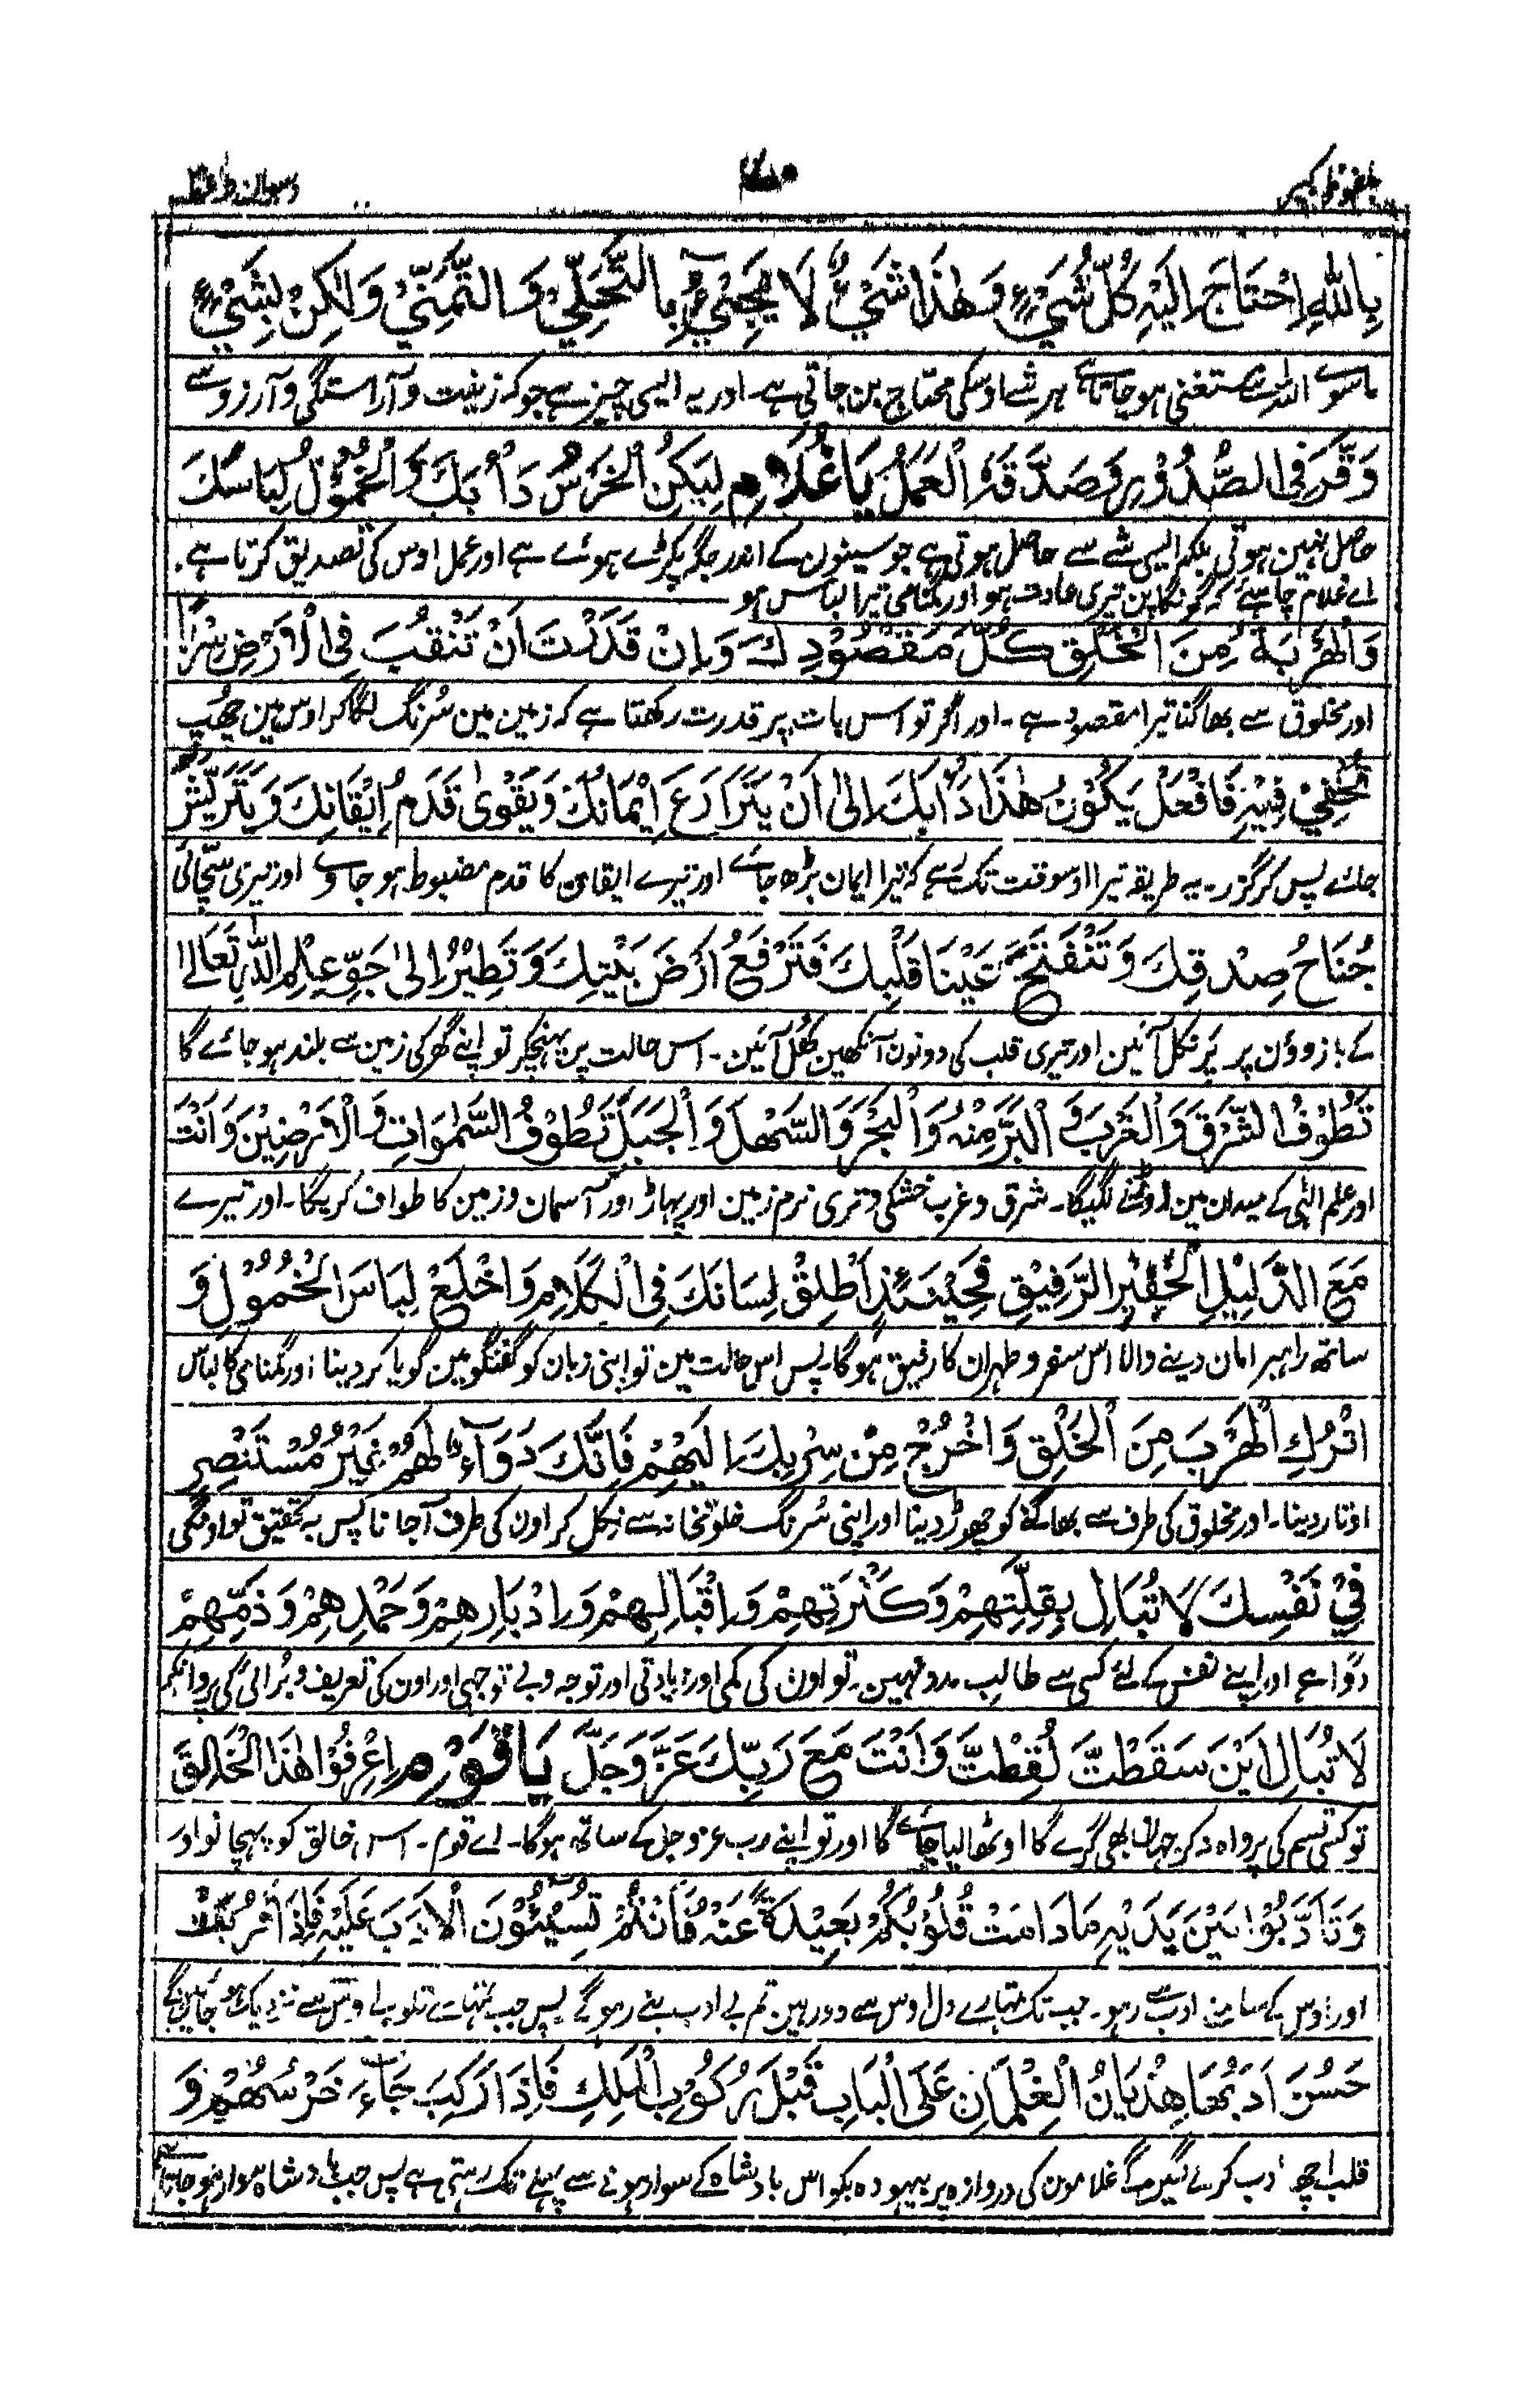 بِاللّٰهِ اِحْتَاجَ اِلَيْهِ كُلُّ شَيْءٍ وَهٰذَا شَيْءٌ لَا يَجِيْءُ بِالتَّحَلِّيْ وَالتَّمَنِّيْ وَلٰكِنْ بِشَيْءٍ
ماسوے اللہ سے مستغنی ہو جاتا ہے ہر شے اوسکی محتاج بن جاتی ہے۔ اور یہ ایسی چیز ہے جو کہ زینت و آراستگی و آرزو سے
وَقَّرَ فِی الصُّدُوْرِ وَصَدَّقَهُ الْعَمَلُ يَا غُلَامُ لِيَكُنِ الْخَرَسُ دَأْبَكَ وَالْخُمُوْلُ لِبَاسَكَ
حاصل نہین ہوتی بلکہ ایسی شے سے حاصل ہوتی ہے جو سینون کے اندر جگہ پکڑے ہوئے ہے اور عمل اوس کی تصدیق کرتا ہے۔
اے غلام چاہئے کہ گونگا پن تیری عادت ہو اور گمنامی تیرا لباس ہو
وَالْهَرَبَةُ مِنَ الْخَلْقِ كُلَّ مَقْصُوْدِكَ وَاِنْ قَدَرْتَ اَنْ تَنْقُبَ فِی الْاَرْضِ سَرَبًا
اور مخلوق سے بھاگنا تیرا مقصود ہے۔ اور اگر تو اس بات پر قدرت رکھتا ہے کہ زمین مین سُرنگ لگا کر اوس مین چھپ
تَخْتَفِيْ فِيْهِ فَافْعَلْ يَكُوْنُ هٰذَا دَأْبَكَ اِلٰی اَنْ يَتَرَعْرَعَ اِيْمَانُكَ وَيَقْوٰی قَدَمُ اِيْقَانِكَ وَيَتَرَيَّشَ
جائے پس کر گزر۔ یہ طریقہ تیرا اوسوقت تک رہے کہ تیرا ایمان بڑھ جائے اور تیرے ایقان کا قدم مضبوط ہو جاوے اور تیری سچائی
جُنَاحُ صِدْقِكَ وَتَنْفَتِحَ عَيْنَا قَلْبِكَ فَتَرْفَعُ اَرْضَ بَيْتِكَ وَتَطِيْرُ اِلٰی جَوِّ عِلْمِ اللّٰهِ تَعَالٰی
کے بازوؤن پر پَر نکل آئین اور تیری قلب کی دونون آنکھین کھُل آئین۔ اس حالت پر پہنچکر تو اپنے گھر کی زمین سے بلند ہو جائے گا
تَطُوْفُ الشَّرْقَ وَالْغَرْبَ وَالْبَرَّ مِنْهُ وَالْبَحْرَ وَالسَّهْلَ وَالْجَبَلَ تَطُوْفُ السَّمٰوَاتِ وَالْاَرْضِيْنَ وَاَنْتَ
اور علم الٰہی کے میدان مین اوڑنے لگیگا۔ شرق و غرب خشکی و تری نرم زمین اور پہاڑ اور آسمان و زمین کا طواف کریگا۔ اور تیرے
مَعَ الدَّلِيْلِ الْخَفِيْرِ الرَّفِيْقِ فَحِيْنَئِذٍ اَطْلِقْ لِسَانَكَ فِی الْكَلَامِ وَاخْلَعْ لِبَاسَ الْخُمُوْلِ وَ
ساتھ راہبر امان دینے والا اس سفر و طیران کا رفیق ہوگا۔ پس اس حالت مین تو اپنی زبان کو گفتگو مین گویا کر دینا اور گمنامی کا لباس
اتْرُكِ الْهَرَبَ مِنَ الْخَلْقِ وَاخْرُجْ مِنْ سِرْبِكَ اِلَيْهِمْ فَاِنَّكَ دَوَآءٌ لَهُمْ غَيْرُ مُسْتَنْصِرٍ
اوتار دینا۔ اور مخلوق کی طرف سے بھاگنے کو چھوڑ دینا اور اپنی سُرنگ خلوتخانہ سے نکل کر اون کی طرف آ جانا پس بہ تحقیق تو اونکی
فِيْ نَفْسِكَ لَا تُبَالِ بِقِلَّتِهِمْ وَكَثْرَتِهِمْ وَاِقْبَالِهِمْ وَاِدْبَارِهِمْ وَحَمْدِهِمْ وَذَمِّهِمْ
دوا ہے اور اپنے نفس کے لئے کسی سے طالب مدد نہین۔ تو اون کی کمی اور زیادتی اور توجہ و بے توجہی اور اون کی تعریف و برائی کی پروا نکر
لَا تُبَالِ اَيْنَ سَقَطْتَّ لُقِطْتَّ وَاَنْتَ مَعَ رَبِّكَ عَزَّ وَجَلَّ يَا قَوْمِ اِعْرِفُوْا هٰذَا الْخَالِقَ
تو کسی قسم کی پرواہ نکر جہان بھی گرے گا اوٹھا لیا جائے گا اور تو اپنے رب عز و جل کے ساتھ ہوگا۔ اے قوم۔ اس خالق کو پہچانو اور
وَتَاَدَّبُوْا بَيْنَ يَدَيْهِ مَا دَامَتْ قُلُوْبُكُمْ بَعِيْدَةً عَنْهُ فَاَنْتُمْ تُسِيْئُوْنَ الْاَدَبَ عَلَيْهِ فَاِذَا قَرُبَتْ
اور اوس کے سامنے ادب سے رہو۔ جب تک تمہارے دل اوس سے دور ہین تم بے ادب بنے رہو گے پس جب تمہارے قلوب اوس سے نزدیک ہو جائین گے
حَسُنَ اَدَبُهَا هِذْيَانُ الْغِلْمَانِ عَلَی الْبَابِ قَبْلَ رُكُوْبِ الْمَلِكِ فَاِذَا رَكِبَ جَآءَ خَرْسُهُمْ وَ
قلب اچھا ادب کرنے لگین گے غلامون کی دروازہ پر بیہودہ بکواس بادشاہ کے سوار ہونے سے پہلے تک رہتی ہے پس جب بادشاہ سوار ہو جاتا ہے